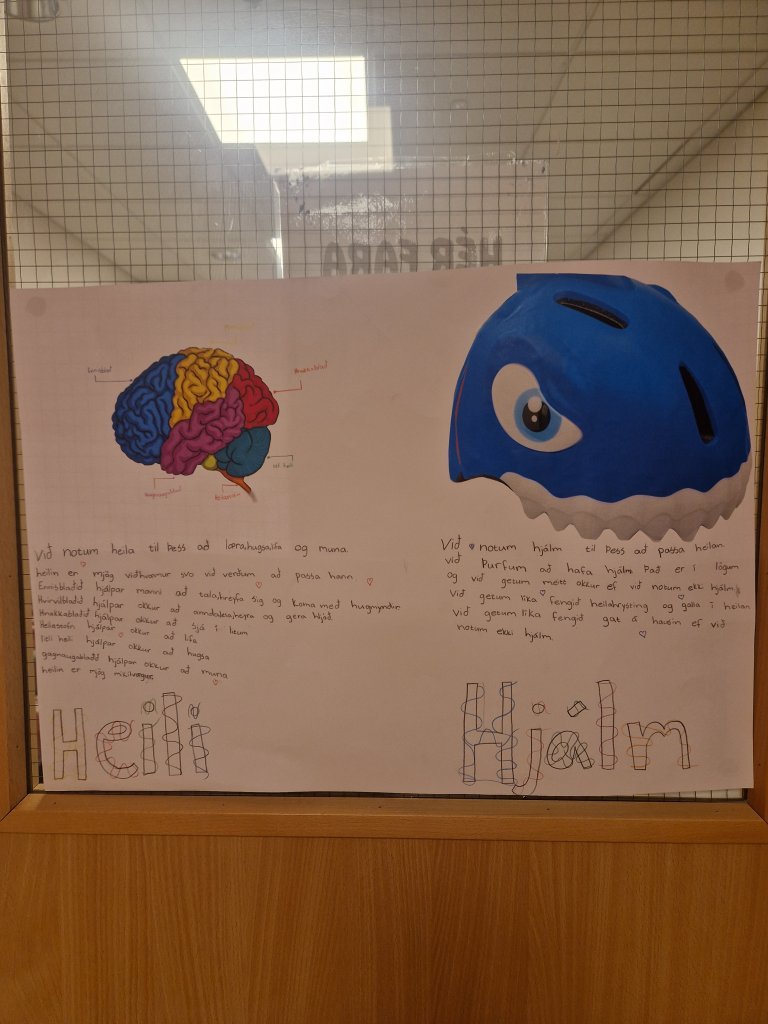 HÉR FARA
Ennisblað
Hnakkablað
Gagnaugablað
Heilastofn
litli heili
Við notum heila til þess að læra,hugsa,lifa og muna.
heilin er mjög viðkvæmur svo við verðum að passa hann
Ennisblaðið hjálpar manni að tala,hreyfa sig og koma með hugmyndir
Hvirvilblaðið hjálpar okkur að anndala,hejra og gera hljjóð.
Hnakkablaðið hjálpar okkur að sjá í litum
Heilastofn hjálpar okkur að lifa
litli heili hjálpar okkur að hugsa
gagnaugablaðið hjálpar okkur að muna
heilin er mjög mikilvægur
Heili
Við notum hjálm til þess að passa heilan.
við Þurfum að hafa hjálm. Það er í lögum
og við getum meitt okkur ef við notum ekki hjálm
Við getum líka fengið heilahrysting og galla í heilan
Við getum líka fengið gat á hausin ef við
notum ekki hjálm.
Hjálm